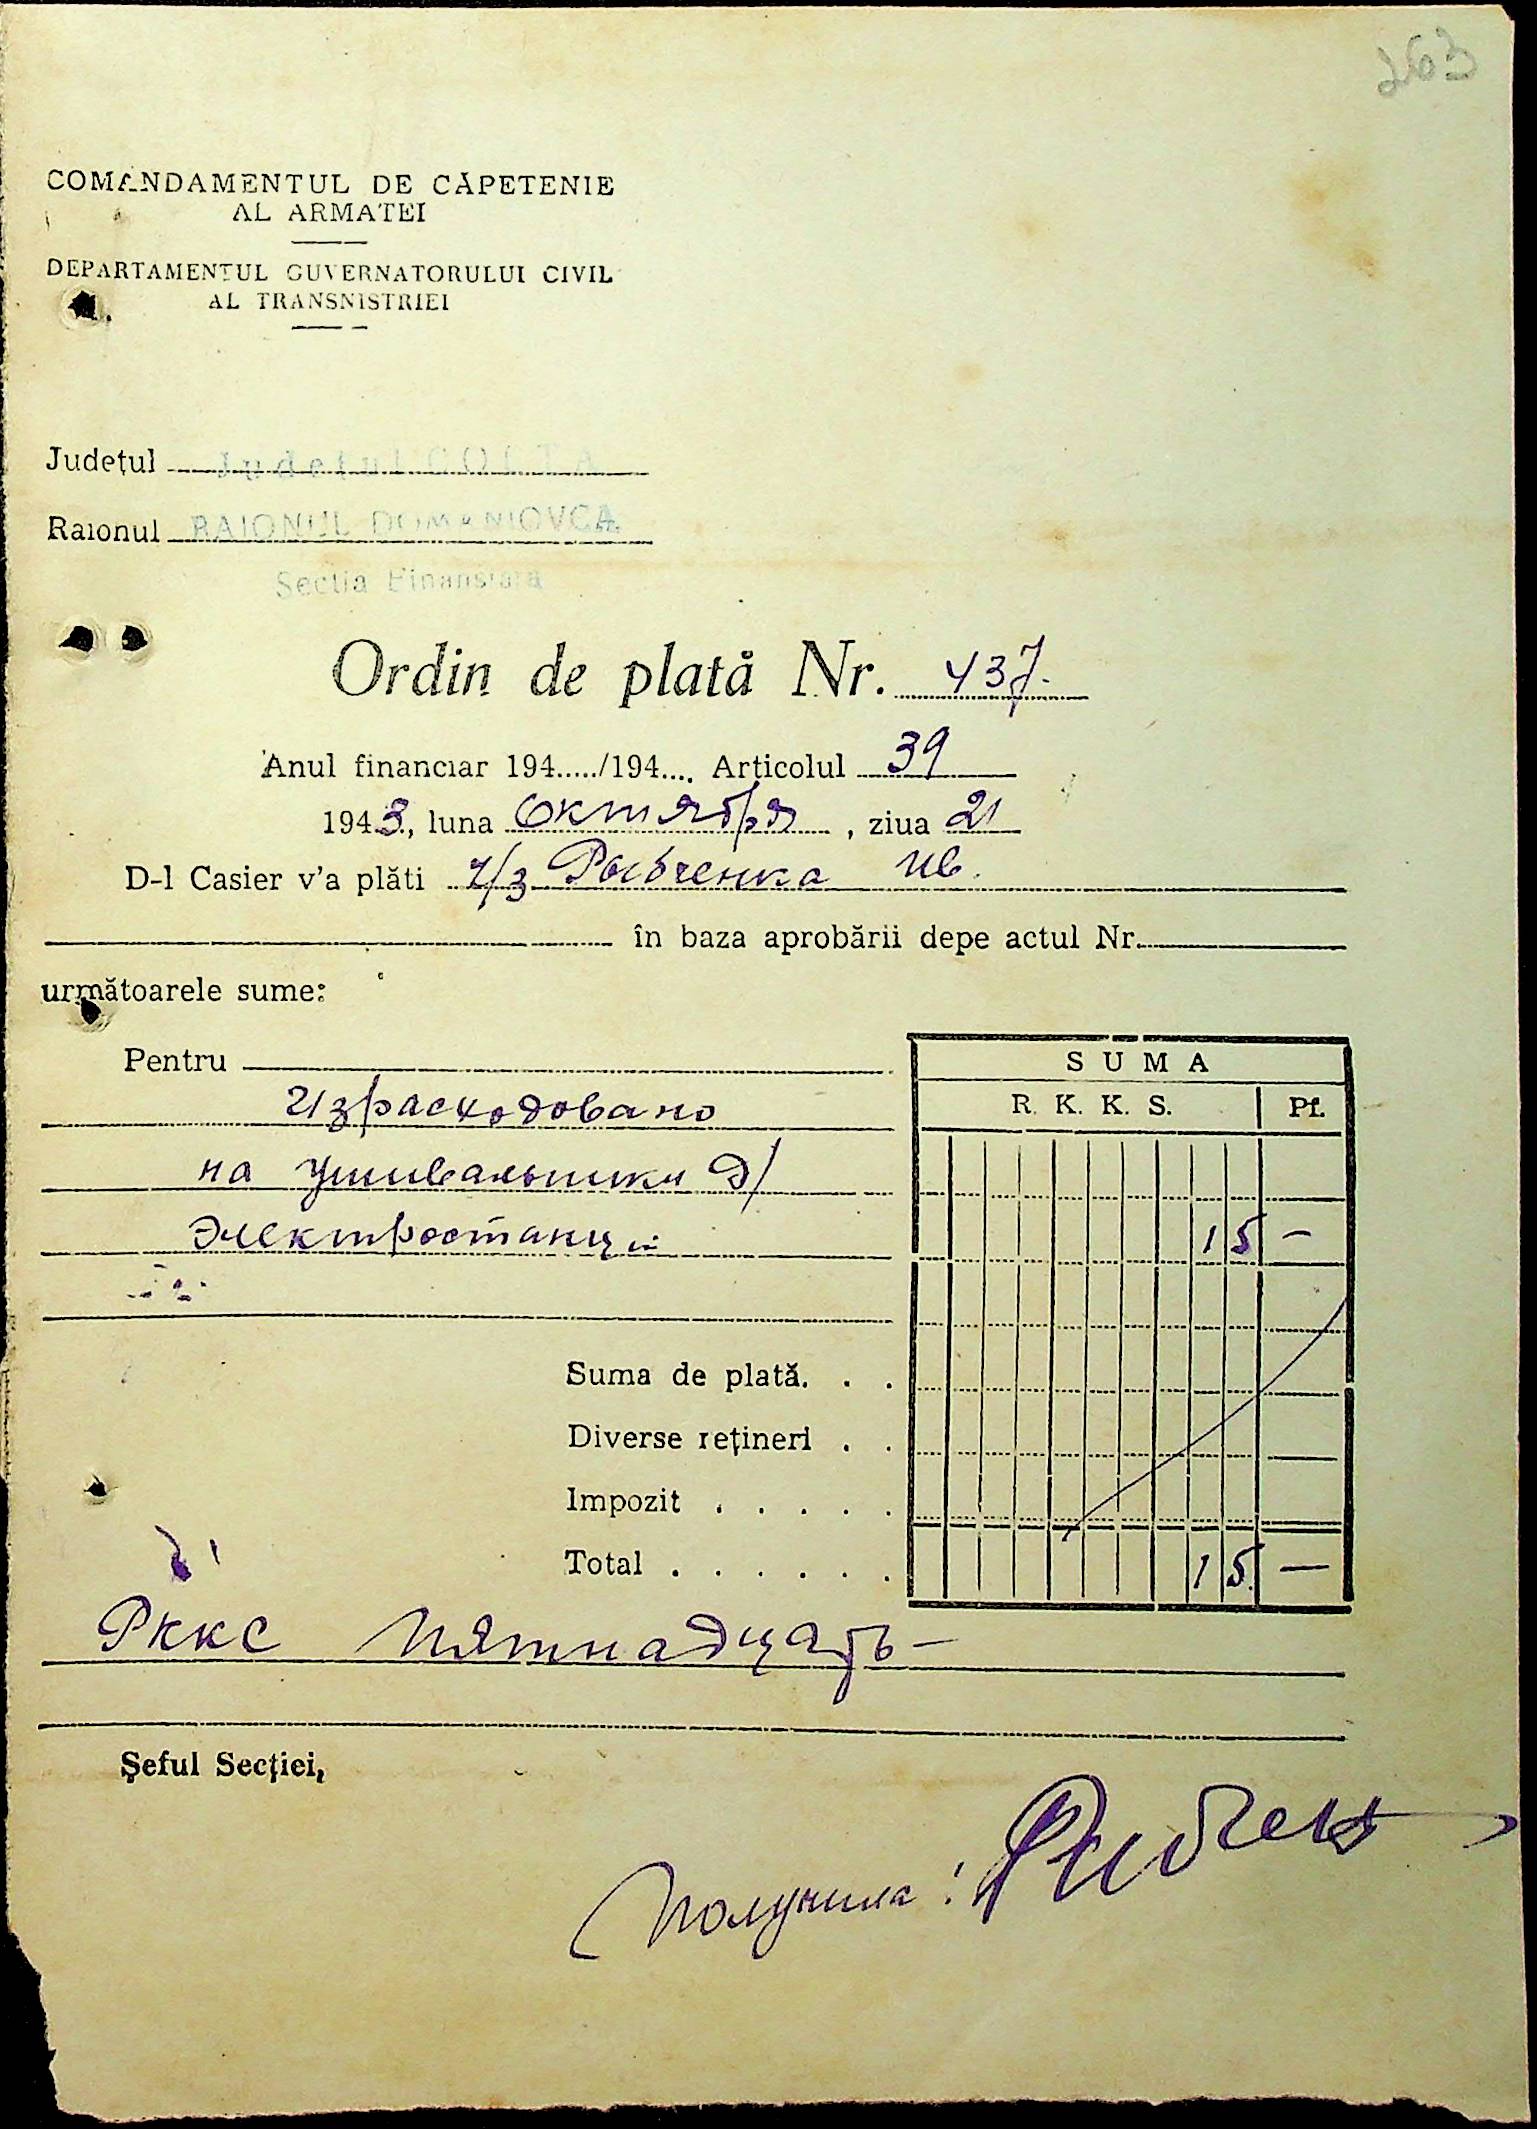 263
COMANDAMENTUL DE CĂPETENIE
AL ARMATEI
DEPARTAMENTUL GUVERNATORULUI CIVIL
AL TRANSNISTRIEI
Județul Județul GOLTA
Raionul RAIONUL DOMANIOVCA
Sectia Finansiara
Ordin de plată Nr. 437.
Anul financiar 194...../194.... Articolul 39
1943, luna Октября, ziua 21
D-l Casier v'a plăti ч/з Рыбченка Ив.
în baza aprobării depe actul Nr.
următoarele sume:
Pentru
SUMA
Израсходовано
R. K. K. S. Pf.
на умывальники д/
Электростанции
15 –
Suma de plată. . .
Diverse rețineri . .
Impozit . . . . .
Total . . . . . . 15. —
РККС Пятнадцать –
Șeful Secției,
Получила: